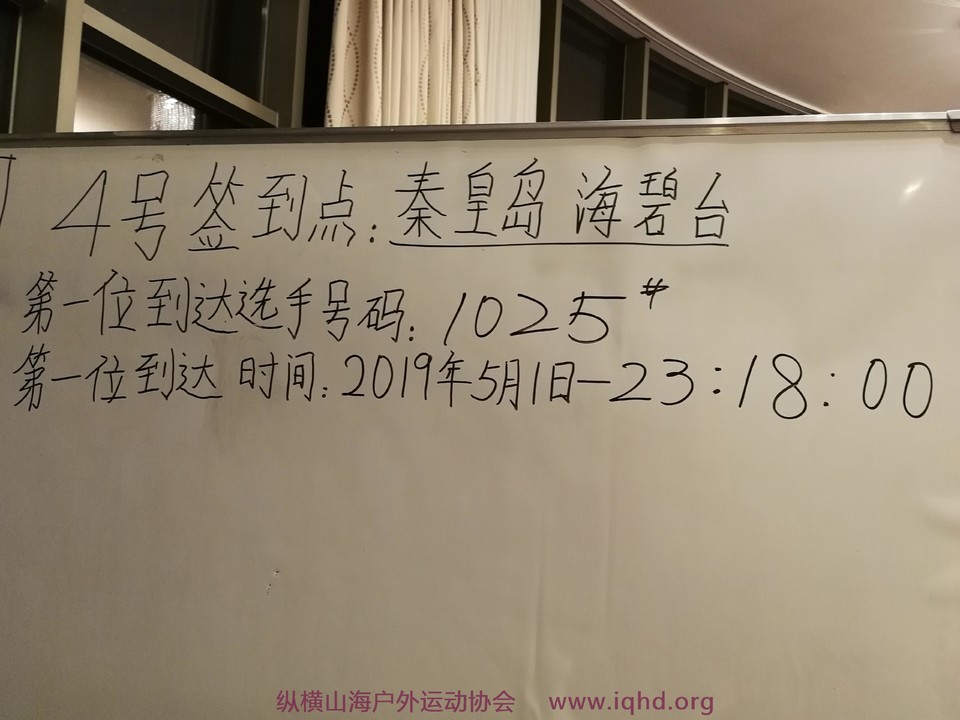 4号签到点：秦皇岛 海碧台
第一位到达选手号码：1025#
第一位到达 时间：2019年5月1日—23:18:00
纵横山海户外运动协会 www.iqhd.org